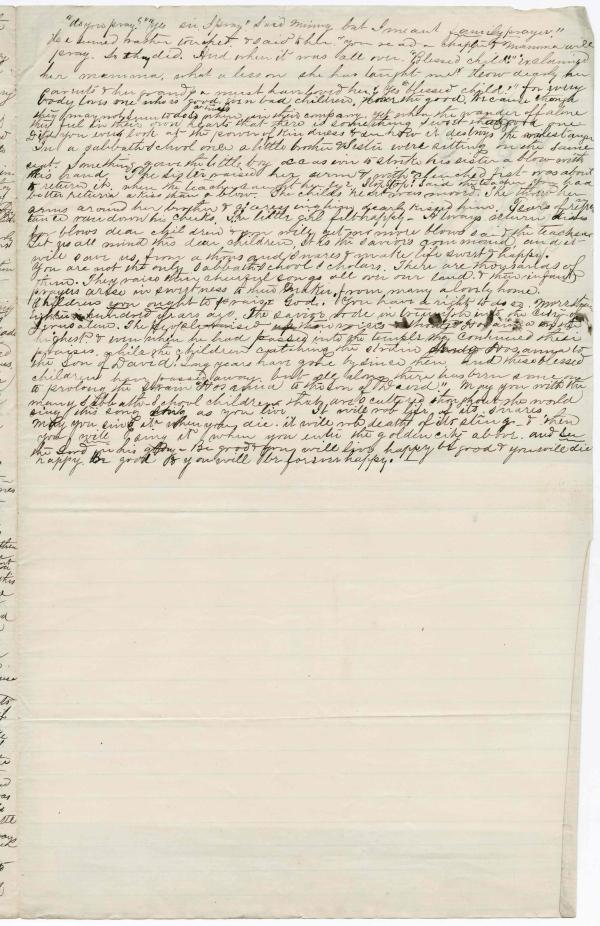 "do you pray?" "Yes sir I pray" Said Minny but I meant family prayer."
He seemed rather to expect. & said to her "You read a chapter & Mamma will
pray. So they did. And when it was all over. "Blessed child!" exclaimed
her mamma, what a lesson she has taught me! How dearly her
parents & her grandpa must have loved her! Yes blessed child." for every
body loves one who is good, even bad children, love the good, because though
they may not to do as when in their company, yet when they wander off alone
they feel in their own hearts that there is something about a good one
If you would look at the power of kindness & see how it destroys the wildest anger
In a sabbath school once a little brother & sister were sitting on the same
seat. Something gave the little boy occasion to strike his sister a blow with
his hand, The sister raised her arm & with clenched fist was about
to return it, when the teacher caught her eye. Stop! Said the teacher you had
better return a kiss than a blow. The childs heart was moved. She threw her
arms around her brother & dearly kissed him. Tears of repen
tance ran down his cheeks. The little girl felt happy. Always return kisses
for blows dear children & you will get no more blows said the teacher
Let us all mind this dear children, It is the saviors command, and it
will save us, from a thousand snares & make life sweet & happy.
You are not the only Sabbath School scholars. There are thousands of
them. They raise their cheerful songs all over our land. & their infant
prayers arise in sweetness to their Maker, from many a lovely home.
Children you ought to praise God. You have a right to do so. More than
eighteen hundred years ago. The Savior rode in triumph into the City of
Jerusalem. The people raised up their voices & shouted Hosanna in the
highest & even when he had passed into the temple they continued their
praises. while the children catching the strain Hosanna to
the Son of David. Long years have gone by since then and these blessed
children have passed away. but all along there has been some
to prolong the strain "Hosanna to the Son of David". May you with the
many Sabbath School children that are scattered throughout the world
sing this song long as you live. It will rob life of its snares.
May you sing it when you die. it will rob death of its sting. & then
you will sing it when you enter the golden city above. and see
the Lord in his glory. Be good & you will live happy be good & you will die
happy Be good & you will be forever happy.